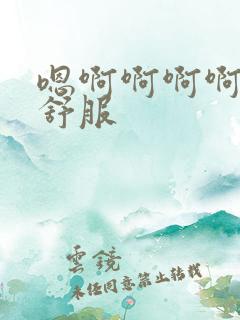 嗯啊啊啊啊
舒服
雲鏡
未经同意禁止转载